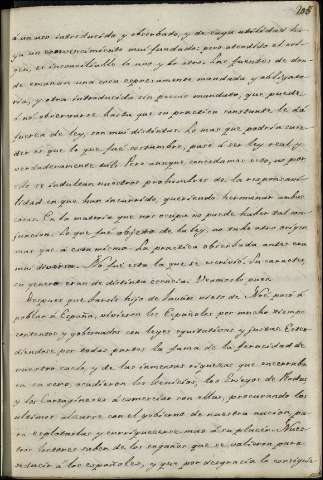 205
á un uso introducido y observado, y de cuya utilidad ha-
ya un convencimiento mui fundado: pero atendido el orí-
gen, es inconciliable lo uno y lo otro. Las fuentes de don-
de emanan una cosa expresamente mandada y obligato-
ria, y otra introducida sin previo mandato, que puede
ó no observarse hasta que su practica constante le dá
fuerza de ley, son mui distintas. Lo mas que podría suce-
der es que lo que fué costumbre, pase á ser ley real y
verdaderamente tal. Pero aunque concedamos esto, no por
ello se indultan nuestros de la responsavi-
lidad en que han incurrido, queriendo hermanar ambas
cosas. En la materia que nos ocupa no puede haber tal con-
juncion. Lo que fué objeto de la ley, no tubo otro origen
mas que á esta misma. La practica observada antes era
mui diversa. No fué esta la que se escrivió. Su caracter,
su genero eran de distinta esencia. Veamoslo pues.
Despues que Tarsis hijo de Javán nieto de Noé, pasó á
poblar á España, vivieron los Españoles por mucho tiempo
contentos y gobernados con leyes equitativas y justas. Esten-
diéndose por todas partes la fama de la feracidad de
nuestro suelo, y de las inmensas riquezas que encerraba
en su seno, acudieron los Fenicios, los Griegos de Rodas
y los Cartagineses á comerciar con ellas, procurando los
ultimos alzarse con el gobierno de nuestra nacion, pa-
ra explotarlas y enriquecerse mas á su placer. Nues-
tros lectores saben de los engaños que se valieron para
seducir á los españoles, y que por desgracia lo consiguie-